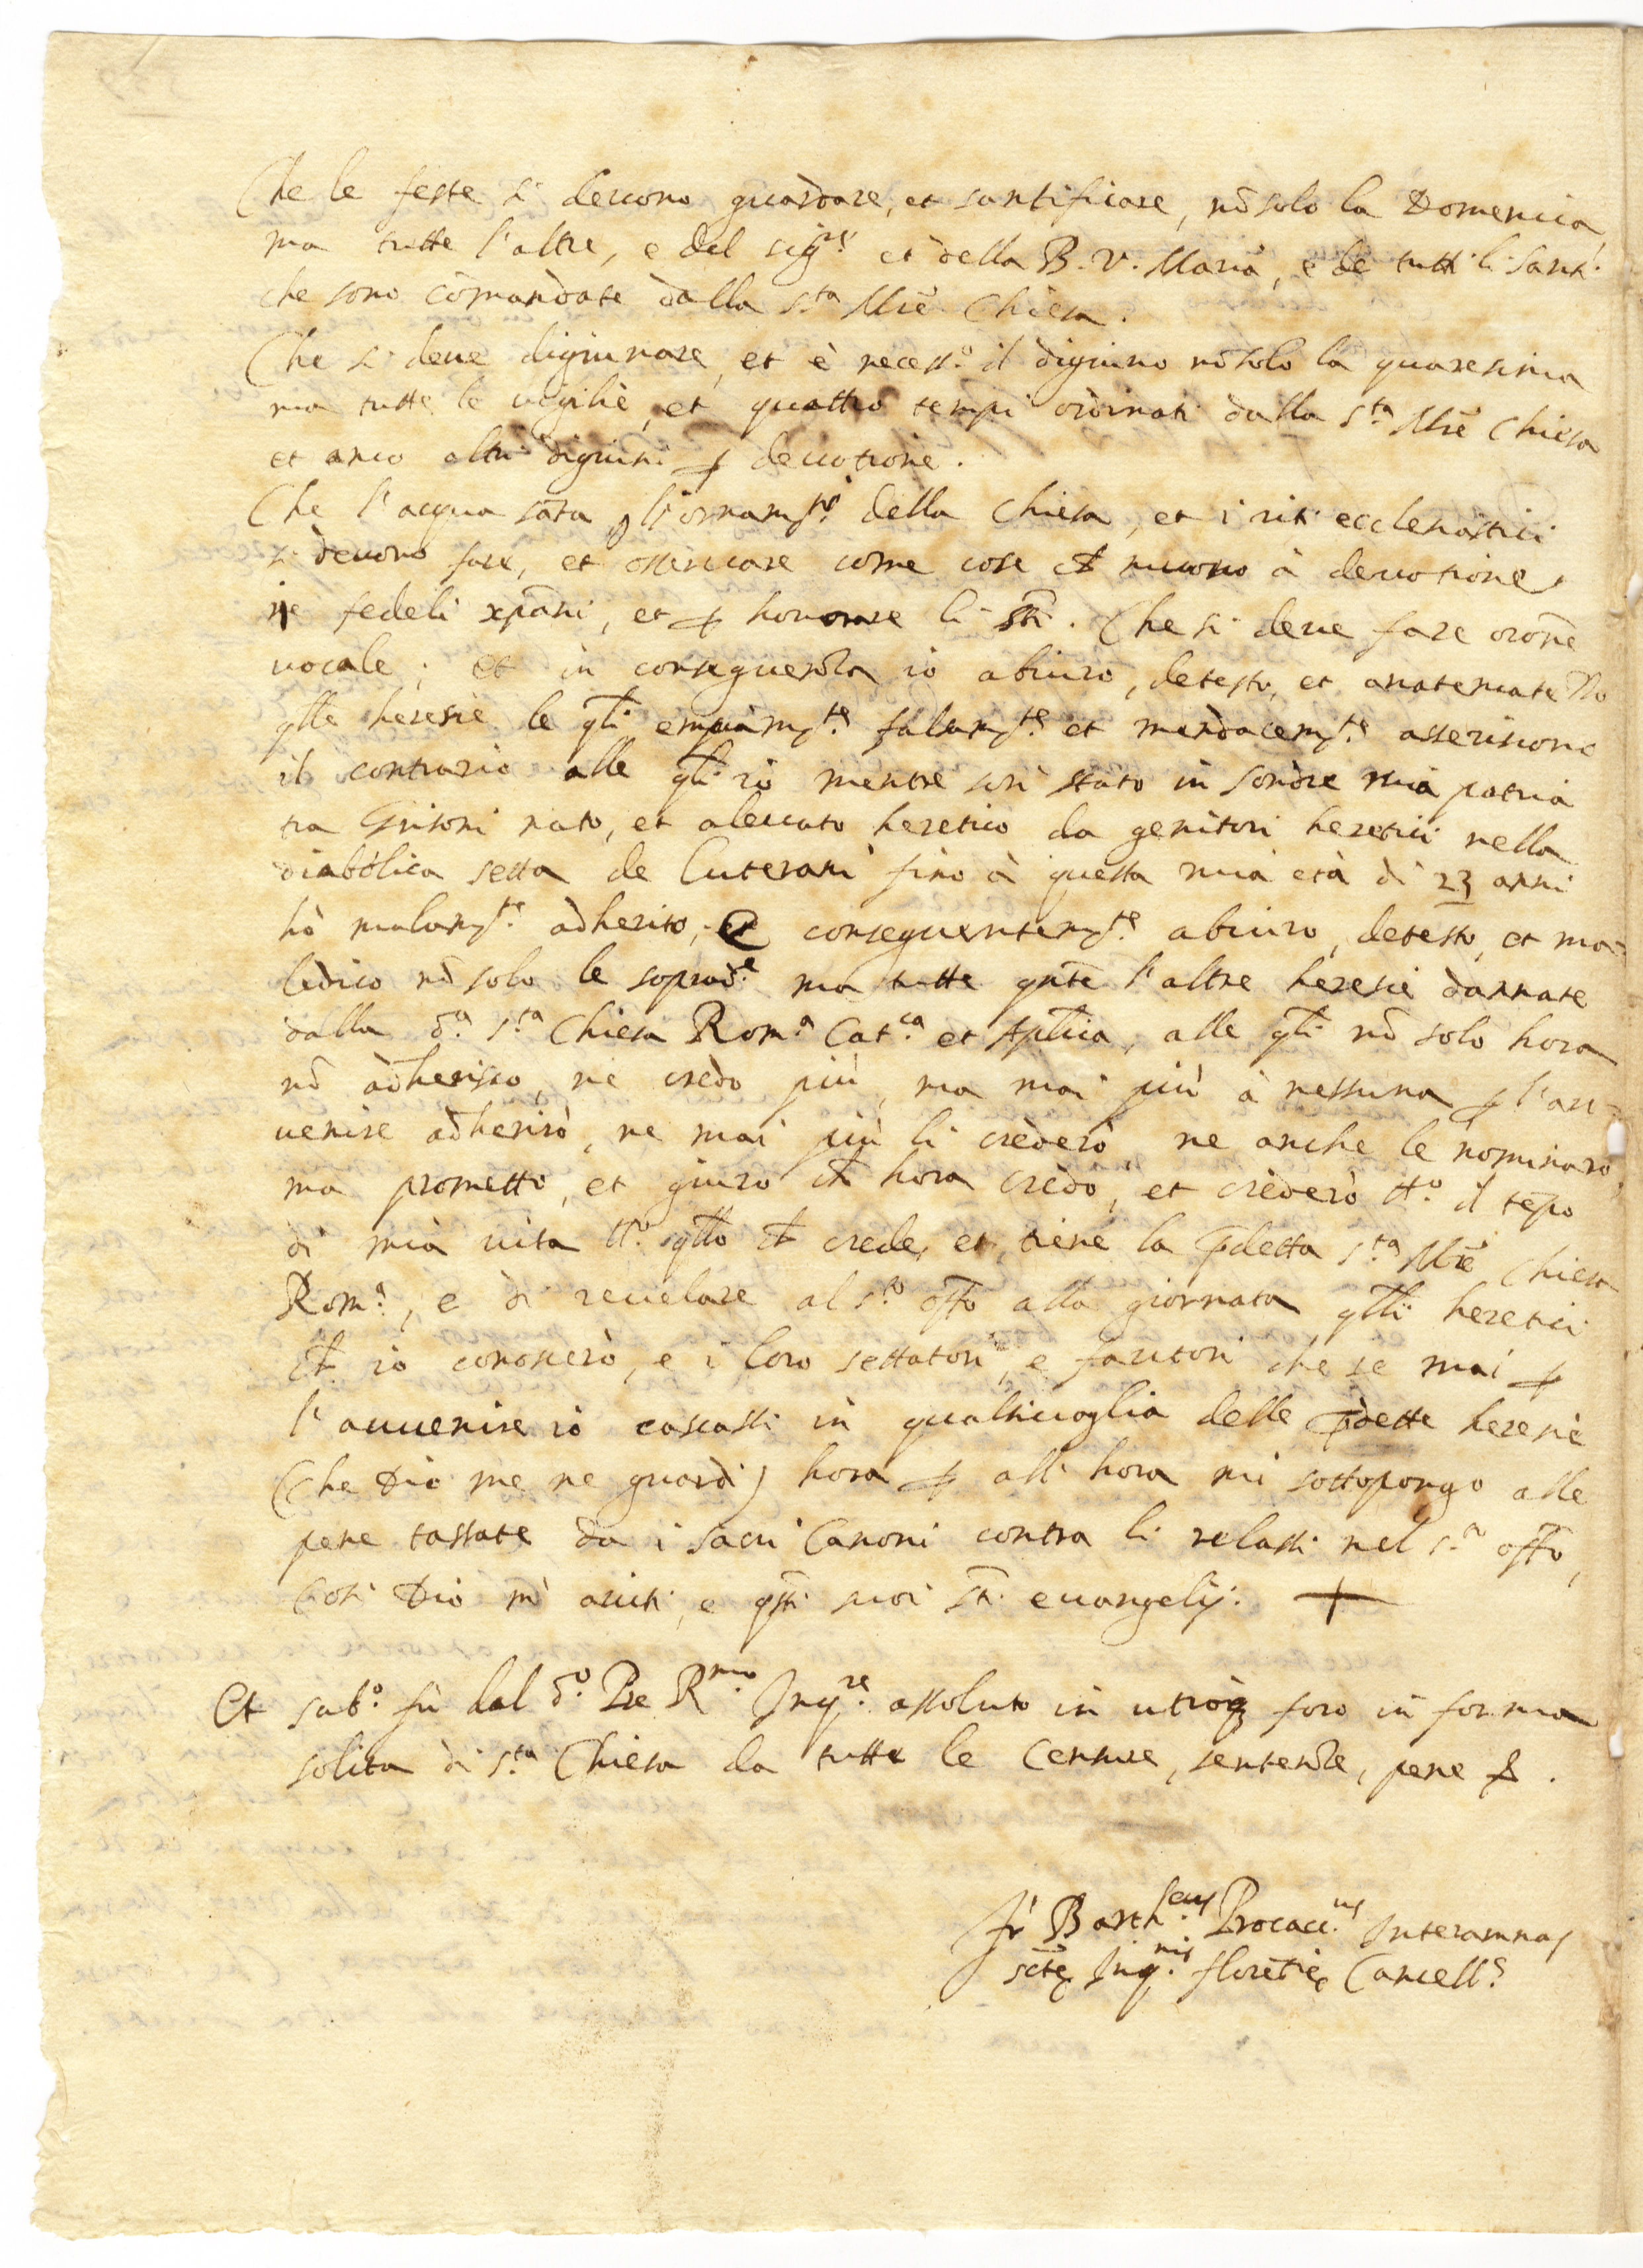 Che le feste si deuono guardare, et santificare, nõ solo la Domenica,
ma tutte l'altre, e del sig.re et della B. V. Maria, e de tutti li santi
che sono cõmandate dalla s.ta Mrẽ Chiesa.
Che si deue digiunare, et è necess.o il digiuno nõ solo la quaresima
ma tutte le uigilie, et quattro tempi ordinati dalla s.ta Mrẽ Chiesa
et anco altri digiuni ꝑ deuotione.
Che l'acqua sãta, gl'ornam.ti della Chiesa, et i riti ecclesiastici
si deuono fare, et osseruare come cose ch̃ muouono à deuotione
i fedeli xpãni, et ꝑ honorare li sti. Che si deue fare oronẽ
uocale; et in conseguenza io abiuro, detesto, et anatematizzo
qlle heresie le qli empiam.te falsam.te et mendacem.te asseriscono
il contrario alle qli io mentre son stato in Sondre mia patria
tra Grisoni nato, et aleuato heretico da genitori heretici nella
diabolica setta de luterani fino à questa mia età di 23 anni
hò malam.te adherito, et conseguentem.te abiuro, detesto, et ma=
ledico nõ solo le soprad.e ma tutte qnte l'altre heresie dannate
dalla d.a s.ta Chiesa Rom.a Cat.ca et Aplica, alle qli nõ solo hora
nõ adherisco, ne credo più, ma mai più à nessuna ꝑ l'au=
uenire adherirò, ne mai più li crederò, ne anche le nominarò,
ma prometto, et giuro ch̃ hora credo, et crederò tt.o il tẽpo
di mia uita tt.o qllo ch̃ crede, et tiene la p̃detta s.ta Mrẽ Chiesa
Rom.a, e di reuelare al s.to offo alla giornata qlli heretici
ch̃ io conoscerò, e i loro settatori, e fautori che se mai ꝑ
l'auuenire io cascassi in qualsiuoglia delle p̃dette heresie
(che Dio me ne guardi) hora ꝑ all'hora mi sottopongo alle
pene tassate da i sacri Canoni contra li relassi nel s.to offo,
Così Dio m'aiuti, e qsti suoi sti euangelij. +
Et sub.o fù dal d.o Pre R.mo Inq.re assoluto in utroq foro in forma
solita di s.ta Chiesa da tutte le Censure, sentenze, pene &.
Fr Barth.eus Procacc.us Interamnas
sctę Inq.nis florẽtię Cancell.s